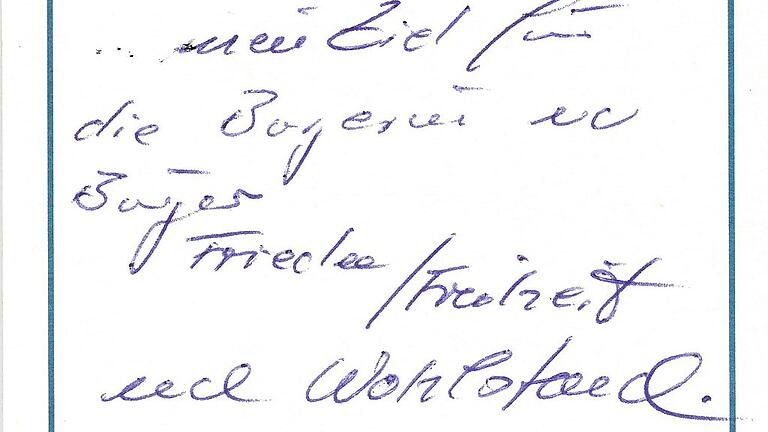 ... mein Ziel für
die Bürgerin und
Bürger
Frieden / Freiheit
und Wohlstand.